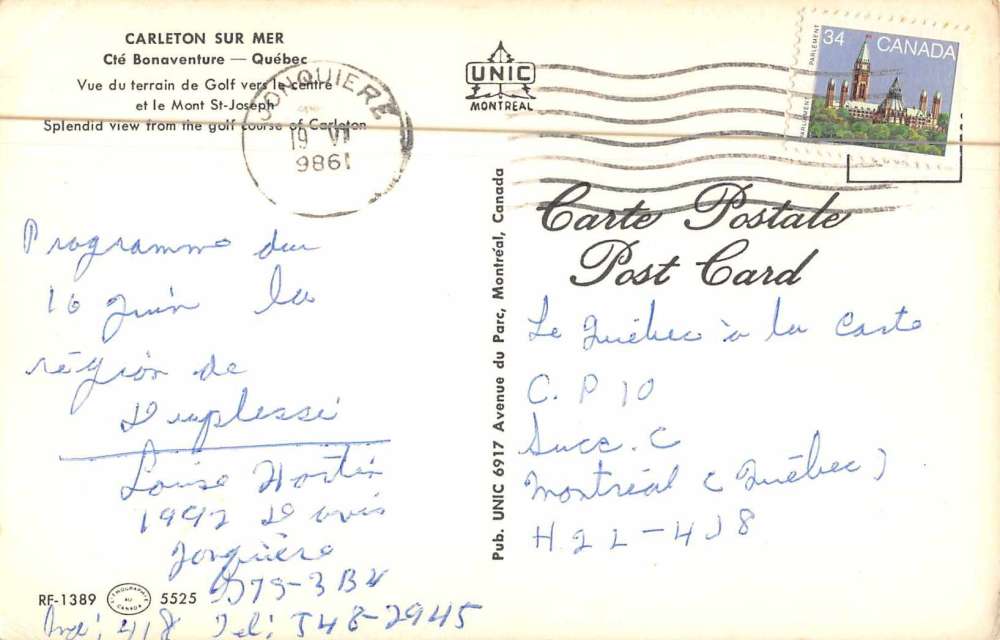 CARLETON SUR MER
Cté Bonaventure — Québec
Vue du terrain de Golf vers le centre
et le Mont St-Joseph
Splendid view from the golf course of Carleton
JONQUIERE
19 VI
1986
UNIC
MONTREAL
34 CANADA
PARLEMENT PARLIAMENT
Carte Postale
Post Card
Pub. UNIC 6917 Avenue du Parc, Montréal, Canada
Programme du
16 Juin la
région de
Duplessi
Louise
1992 Davis
Jonquière
3B2
Ind: 418 Tel: 548-2945
Le Québec à la Carte
C.P 10
Succ. C
Montréal (Québec)
H2L-4J8
RF-1389
5525